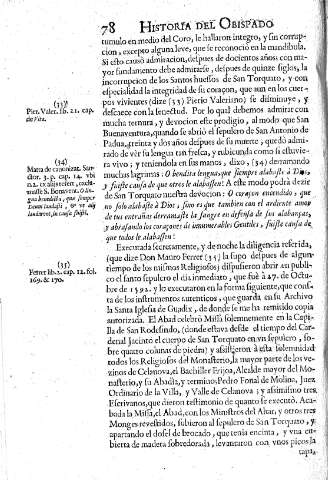 78 HISTORIA DEL OBISPADO
tumulo en medio del Coro, le hallaron integro, y sin corrup-
cion, excepto alguna leve, que se reconociò en la mandibula.
Si esto causò admiracion, despues de docientos años; con ma-
yor fundamento debe admirarse, despues de quinze siglos, la
incorrupcion de los Santos huessos de San Torquato, y con
especialidad la integridad de su coraçon, que aun en los cuer-
pos vivientes (dize (33) Pierio Valeriano) se disminuye, y
desmece con la senectud. Por lo qual debemos admirar con
mucha ternura, y devocion este prodigio, al modo que San
Buenaventura, quando se abriò el sepulcro de San Antonio de
Padua, treinta y dos años despues de su muerte, quedò admi-
rado de vèr su lengua tan fresca, y rubicunda como si estuvie-
ra vivo; y teniendola en sus manos, dixo, (34) derramando
muchas lagrimas: O bendita lengua, que siempre alabaste à Dios,
y fuiste causa de que otros le alabassen! A este modo podrà dezir
de San Torquato nuestra devocion: O coraçon encendido, que
no solo alabaste à Dios, sino es que tambien con el ardiente amor
de tus entrañas derramaste la sangre en defensa de sus alabanças,
y abrasando los coraçones de innumerables Gentiles, fuiste causa de
que todos le alabassen!
Executada secretamente, y de noche la diligencia referida,
(que dize Don Mauro Ferrer (35) la supo despues de algun
tiempo de los mismos Religiosos) dispusieron abrir en publi-
co el santo sepulcro el dia inmediato, que fue à 27. de Octu-
bre de 1592. y lo executaron en la forma siguiente, que cons-
ta de los instrumentos autenticos, que guarda en su Archivo
la Santa Iglesia de Guadix, de donde se me ha remitido copia
autorizada. El Abad celebrò Missa solemnemente en la Capi-
lla de San Rodsindo, (donde estava desde el tiempo del Car-
denal Jacinto el cuerpo de San Torquato en vn sepulcro, so-
bre quatro colunas de piedra) y assistieron à esta solemnidad
todos los Religiosos del Monasterio, la mayor parte de los ve-
zinos de Celanova, el Bachiller Erijoa, Alcalde mayor del Mo-
nasterio, y su Abadia, y termino; Pedro Fontal de Molina, Juez
Ordinario de la Villa, y Valle de Celanova; y assimismo tres
Escrivanos, que dieron testimonio de quanto se executò. Aca-
bada la Missa, el Abad, con los Ministros del Altar, y otros tres
Monges revestidos, subieron al sepulcro de San Torquato, y
apartando el dosel de brocado, que tenia encima, y vna cu-
bierta de madera sobredorada, levantaron con vnos picos la
tapa,
(33)
Pier. Valer. lib. 21. cap.
(34)
Matta de canonizat. San-
ctor. 3. p. cap. 14. vbi
(35)
Ferrer lib. 2. cap. 12. fol.
169. & 170.